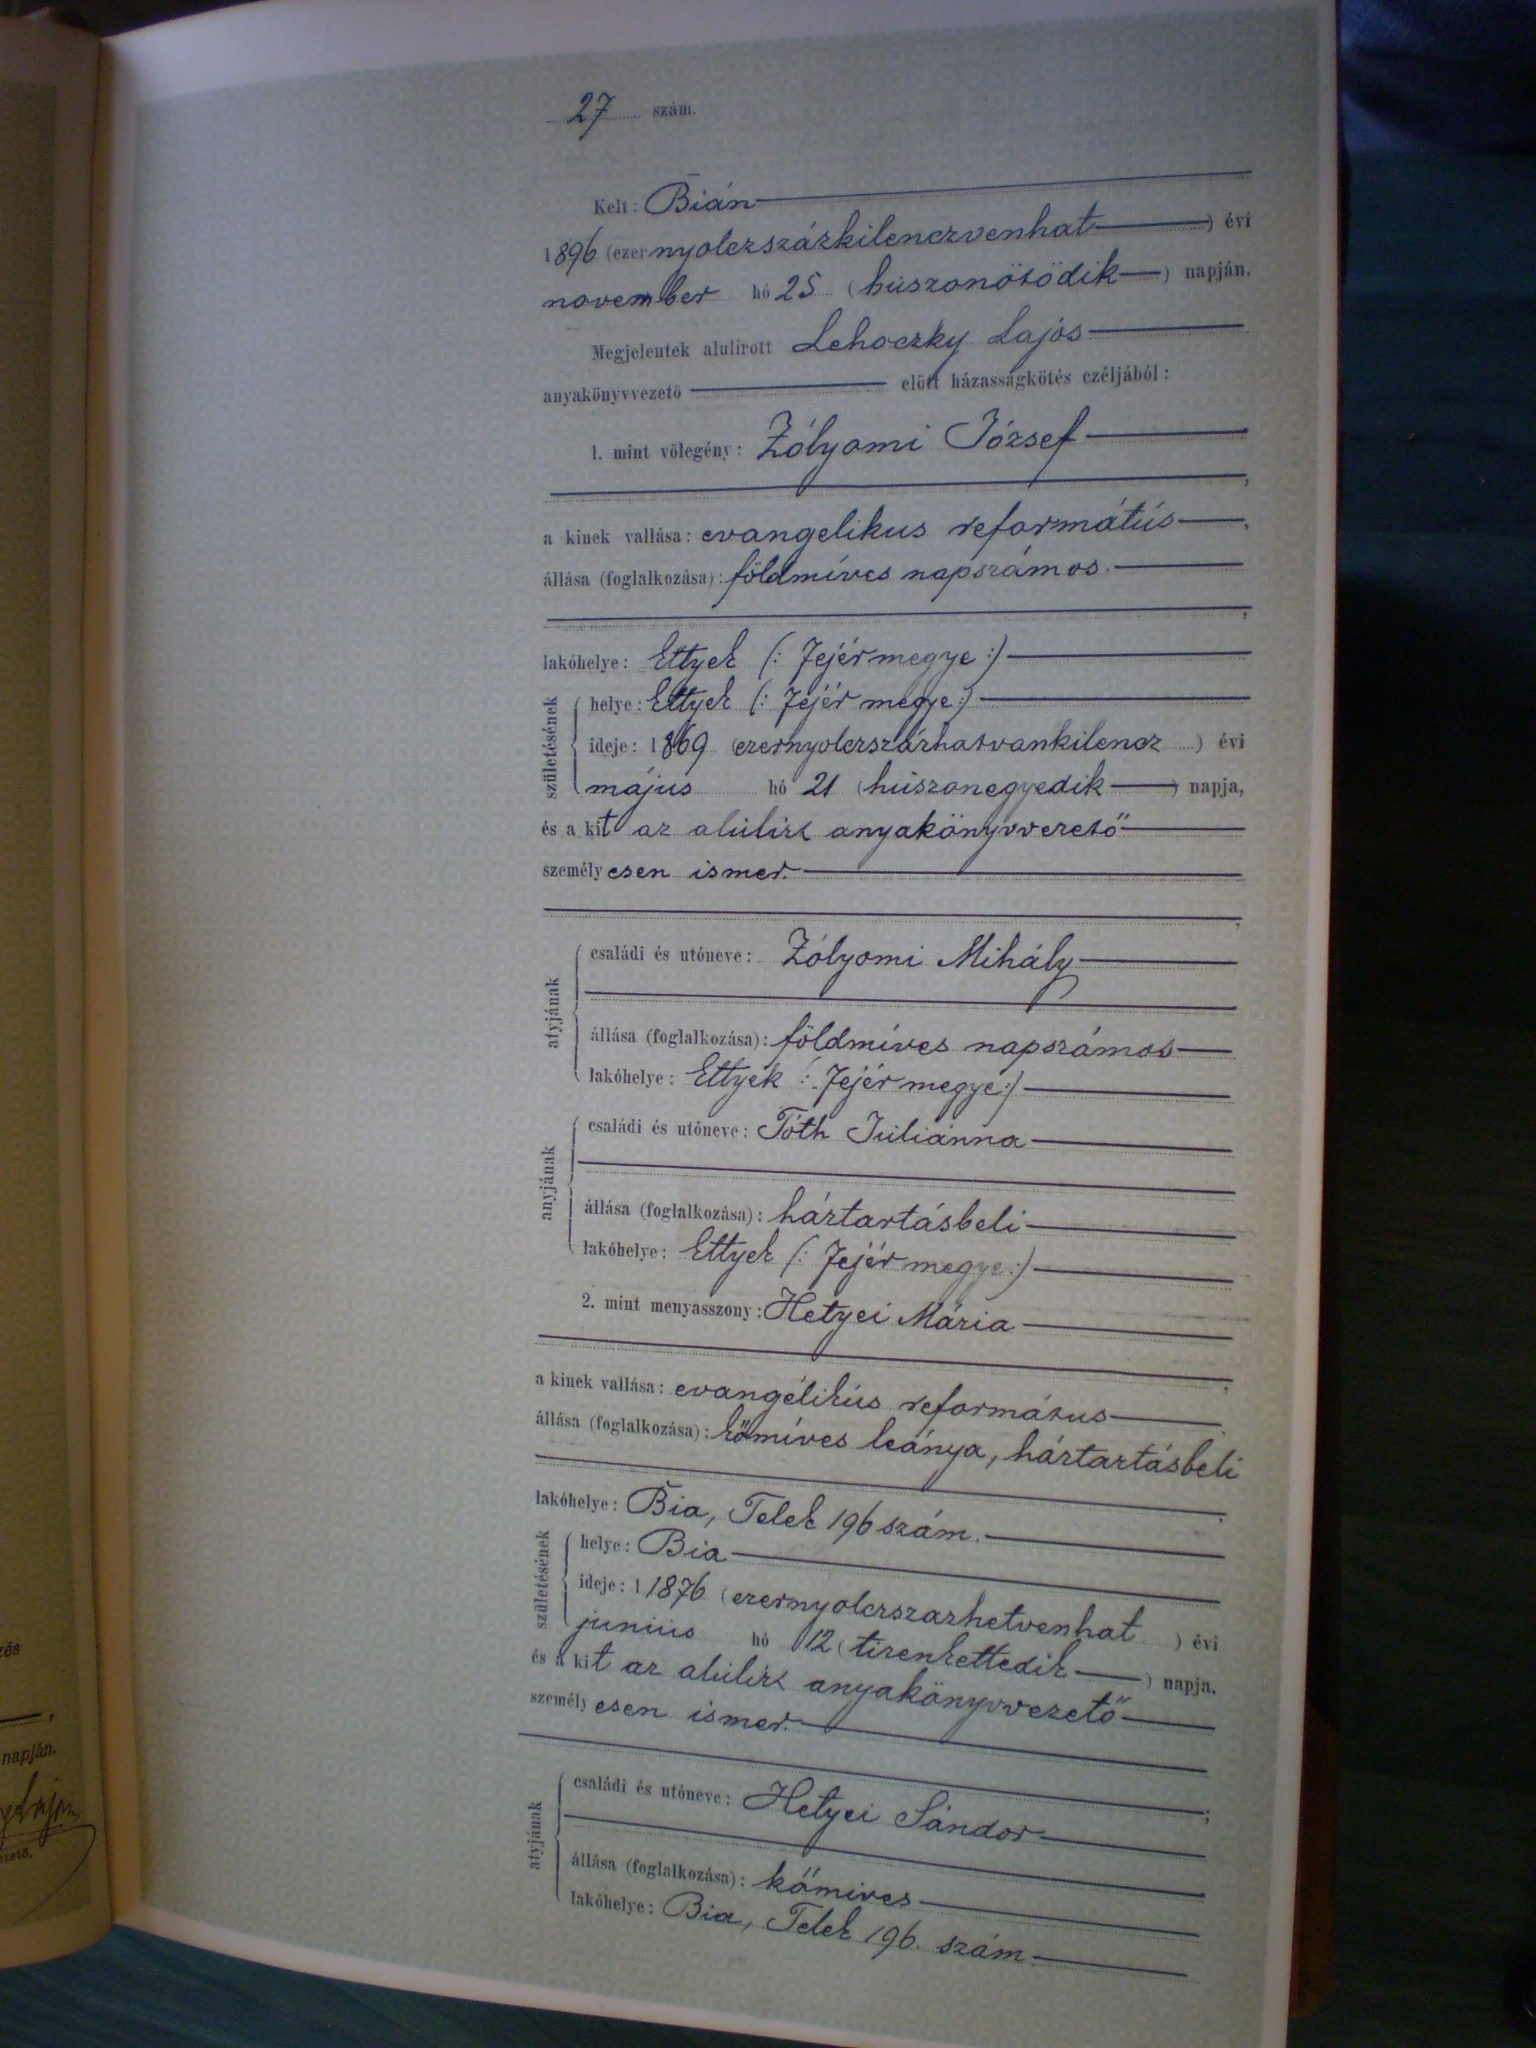 27 szám.
Kelt: Bián
1896 (ezernyolczszázkilenczvenhat) évi
november hó 25 (húszonötödik) napján.
Megjelentek alulirott Lehoczky Lajos
anyakönyvvezető előtt házasságkötés czéljából:
1. mint völegény: Zólyomi József
a kinek vallása: evangelikus reformátús,
állása (foglalkozása): földmíves napszámos.
lakóhelye: Ettyek (: Fejér megye :)
születésének
helye: Ettyek (: Fejér megye :)
ideje: 1869 (ezernyolczszázhatvankilencz) évi
május hó 21 (húszonegyedik) napja,
és a kit az alúlirt anyakönyvvezető
személyesen ismer.
atyjának
családi és utóneve: Zólyomi Mihály
állása (foglalkozása): földmíves napszámos
lakóhelye: Ettyek (: Fejér megye :)
anyjának
családi és utóneve: Tóth Juliánna
állása (foglalkozása): háztartásbeli
lakóhelye: Ettyek (: Fejér megye :)
2. mint menyasszony: Hetyei Mária
a kinek vallása: evangélikús református
állása (foglalkozása): kőmíves leánya, háztartásbeli
lakóhelye: Bia, Telek 196 szám.
születésének
helye: Bia
ideje: 1 1876 (ezernyolczszazhetvenhat) évi
juniús hó 12 (tizenkettedik) napja.
és a kit az alúlirt anyakönyvvezető
személyesen ismer.
atyjának
családi és utóneve: Hetyei Sándor
állása (foglalkozása): kőmives
lakóhelye: Bia, Telek 196. szám
napján.